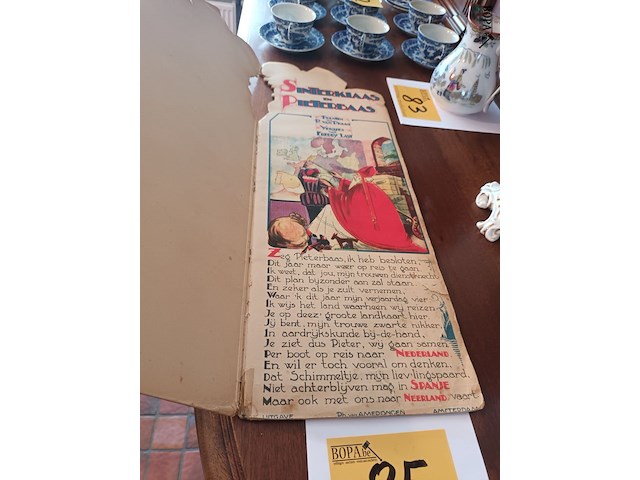 83
SINTERKLAAS
EN
PIETERBAAS
Zeg Pieterbaas, ik heb besloten,
Dit jaar maar weer op reis te gaan.
Ik weet, dat jou, mijn trouwen dienstknecht
Dit plan byzonder aan zal staan.
En zeker als je zult vernemen,
Waar 'k dit jaar mijn verjaardag vier.
Ik wijs het land waarheen wij reizen
Je op deez' groote landkaart hier.
Jij bent, mijn trouwe zwarte nikker,
In aardrijkskunde bij-de-hand.
Je ziet dus Pieter, wij gaan samen
Per boot op reis naar NEDERLAND.
En wil er toch vooral om denken,
Dat Schimmeltje, mijn liev'lingspaard
Niet achterblijven mag in SPANJE
Maar ook met ons naar NEERLAND vaart
UITGAVE AMSTERDAM
BOPA.be
95